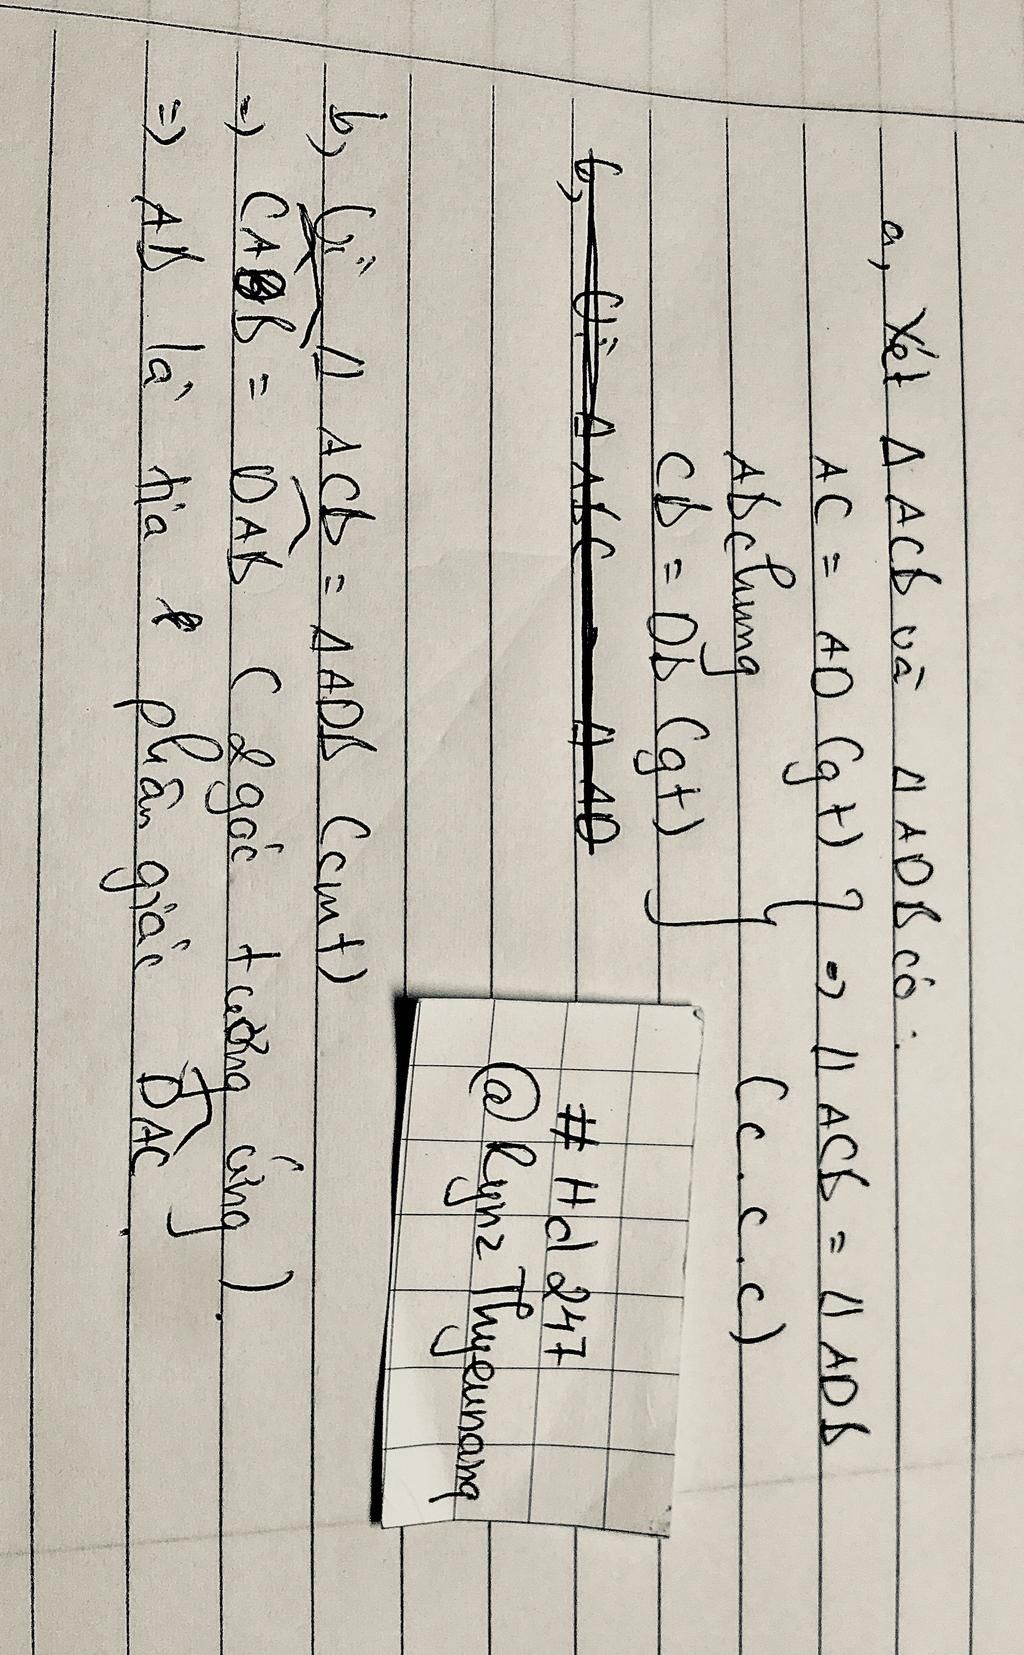 a, Xét Δ ACB và Δ ADB có:
AC = AD (gt) } => Δ ACB = Δ ADB
AB chung (c.c.c)
CB = DB (gt)
b, Vì Δ ABC = Δ AD
b, Vì Δ ACB = Δ ADB (cmt)
=> CAB = DAB (2 góc tương ứng)
=> AB là tia phân giác DAC.
# Hd 247
@ Rynz Thyeunanq